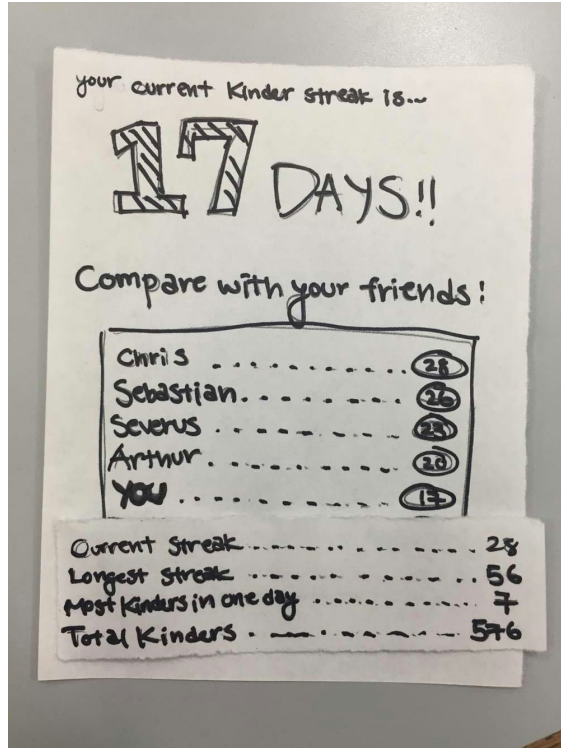 your current Kinder streak is...
17 DAYS!!
Compare with your friends!
Chris .......... 28
Sebastian.......... 26
Severus .......... 23
Arthur .......... 20
YOU .......... 17
Current Streak .......... 28
Longest streak .......... 56
Most Kinders in one day .......... 7
Total Kinders .......... 576